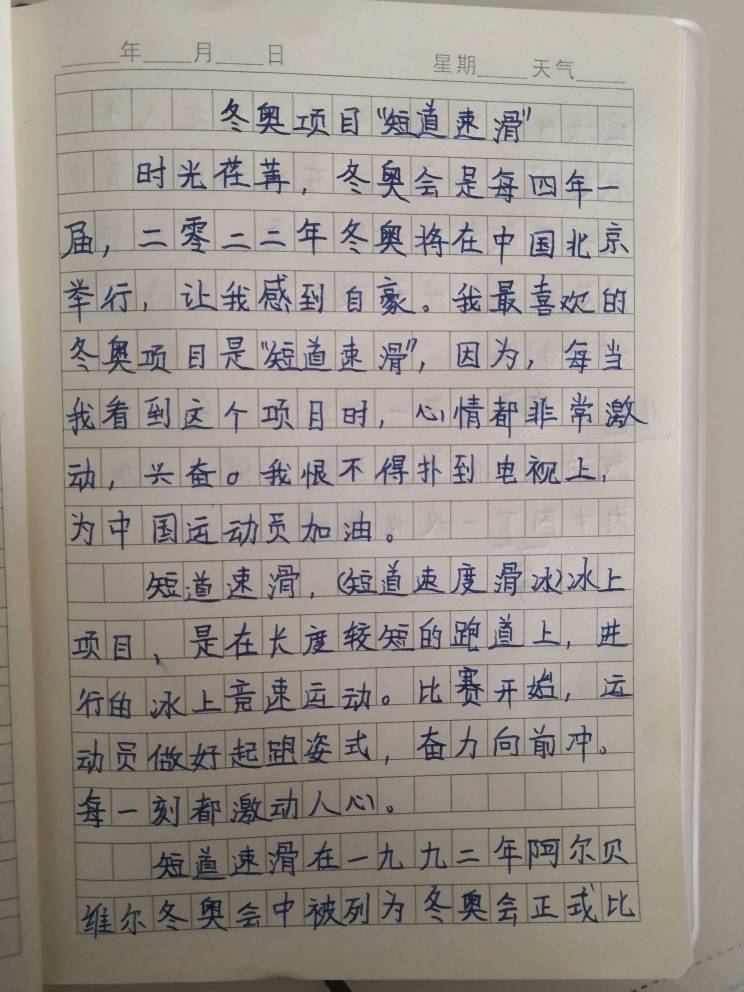 ____年____月____日 星期____天气____
冬奥项目“短道速滑”
时光荏苒，冬奥会是每四年一
届，二零二二年冬奥将在中国北京
举行，让我感到自豪。我最喜欢的
冬奥项目是“短道速滑”，因为，每当
我看到这个项目时，心情都非常激
动，兴奋。我恨不得扑到电视上，
为中国运动员加油。
短道速滑，（短道速度滑冰）冰上
项目、是在长度较短的跑道上，进
行的冰上竞速运动。比赛开始，运
动员做好起跑姿式，奋力向前冲。
每一刻都激动人心。
短道速滑在一九九二年阿尔贝
维尔冬奥会中被列为冬奥会正式比